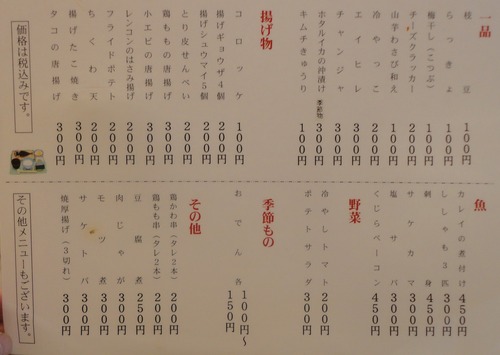 一品
枝豆 100円
らっきょ 100円
梅干し(こつぶ) 100円
チーズクラッカー 200円
山芋わさび和え 200円
冷やっこ 200円
エイヒレ 300円
チャンジャ 300円
ホタルイカの沖漬け 季節物 300円
キムチきゅうり 100円
揚げ物
コロッケ 100円
揚げギョウザ4個 200円
揚げシュウマイ5個 200円
とり皮せんべい 200円
鶏ももの唐揚げ 300円
小エビの唐揚げ 300円
レンコンのはさみ揚げ 200円
フライドポテト 200円
ちくわ天 200円
揚げたこ焼き 300円
タコの唐揚げ 300円
価格は税込みです。
魚
カレイの煮付け 450円
ししゃも3匹 300円
刺身 450円
サケカマ 300円
塩サバ 300円
くじらベーコン 450円
野菜
冷やしトマト 200円
ポテトサラダ 300円
季節もの
おでん各 100円〜150円
その他
鶏かわ串(タレ2本) 200円
鶏もも串(タレ2本) 200円
豆腐煮 250円
肉じゃが 300円
モツ煮 300円
サケトバ 300円
焼厚揚げ(3切れ) 300円
その他メニューもございます。